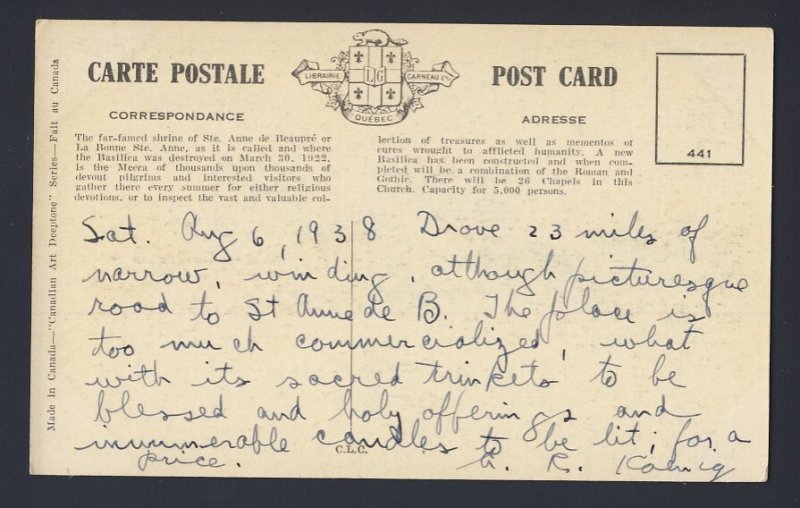 CARTE POSTALE
LIBRAIRIE L G GARNEAU LTÉE
QUÉBEC
POST CARD
CORRESPONDANCE
ADRESSE
441
Made in Canada—"Canadian Art Deeptone" Series—Fait au Canada
The far-famed shrine of Ste. Anne de Beaupré or
La Bonne Ste. Anne, as it is called and where
the Basilica was destroyed on March 30, 1922,
is the Mecca of thousands upon thousands of
devout pilgrims and interested visitors who
gather there every summer for either religious
devotions, or to inspect the vast and valuable col-
lection of treasures as well as mementos of
cures wrought to afflicted humanity. A new
Basilica has been constructed and when com-
pleted will be a combination of the Roman and
Gothic. There will be 26 Chapels in this
Church. Capacity for 5,000 persons.
Sat. Aug 6, 1938 Drove 23 miles of
narrow, winding, although picturesque
road to St Anne de B. The place is
too much commercialized, what
with its sacred trinkets to be
blessed and holy offerings and
innumerable candles to be lit; for a
price. R. Koenig
C.L.C.